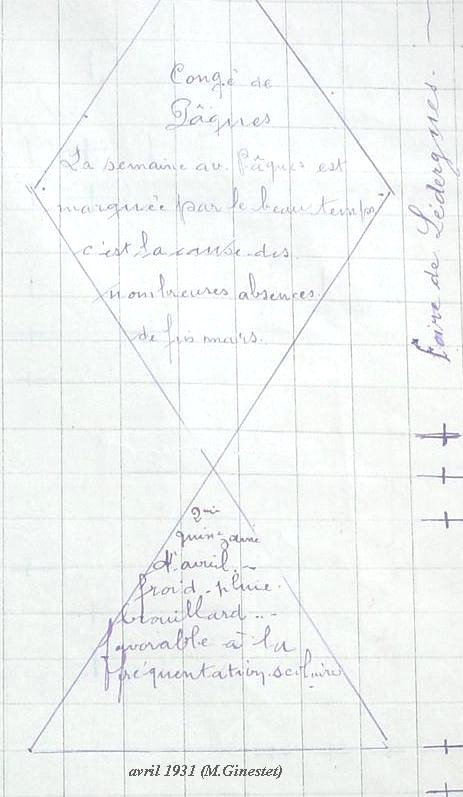 Congé de
Pâques
La semaine av. Pâques est
marquée par le beau temps
c'est la cause des
nombreuses absences.
de fin mars.
2me
quinzaine
d'avril. -
froid - pluie.
brouillard.. -
favorable à la
fréquentation scolaire
foire de Lédergues. -
avril 1931 (M.Ginestet)